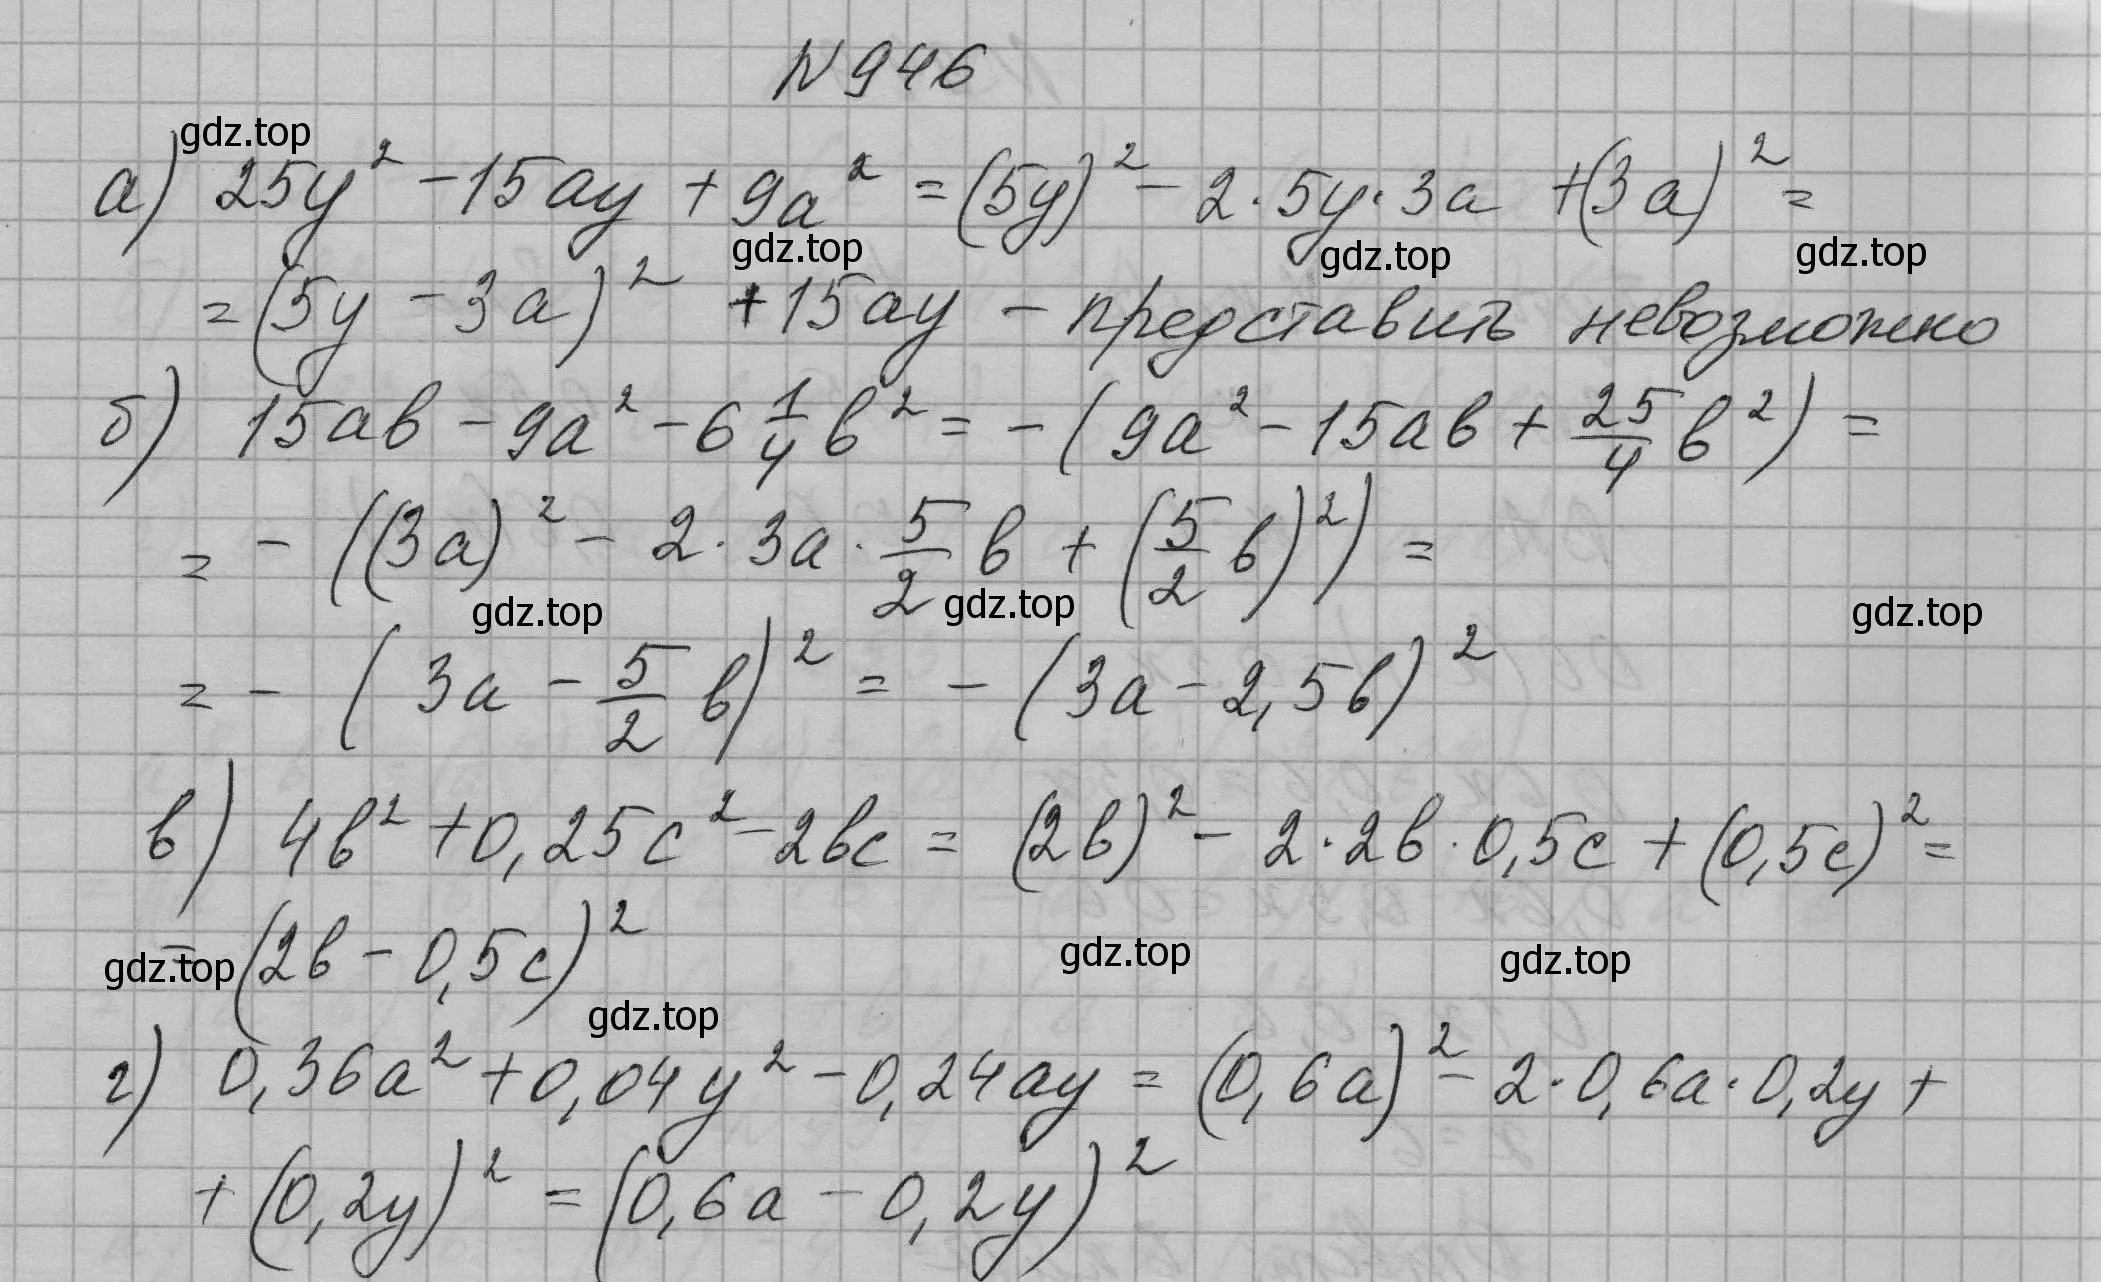 N946
gdz.top
а) 25y² - 15ay + 9a² = (5y)² - 2·5y·3a + (3a)² =
gdz.top gdz.top gdz.top
= (5y - 3a)² + 15ay - представить невозможно
б) 15ab - 9a² - 6 1/4 b² = - (9a² - 15ab + 25/4 b²) =
= - ((3a)² - 2·3a·5/2 b + (5/2 b)²) =
gdz.top gdz.top gdz.top
= - (3a - 5/2 b)² = - (3a - 2,5b)²
в) 4b² + 0,25c² - 2bc = (2b)² - 2·2b·0,5c + (0,5c)² =
= (2b - 0,5c)²
gdz.top gdz.top gdz.top
gdz.top
г) 0,36a² + 0,04y² - 0,24ay = (0,6a)² - 2·0,6a·0,2y +
+ (0,2y)² = (0,6a - 0,2y)²